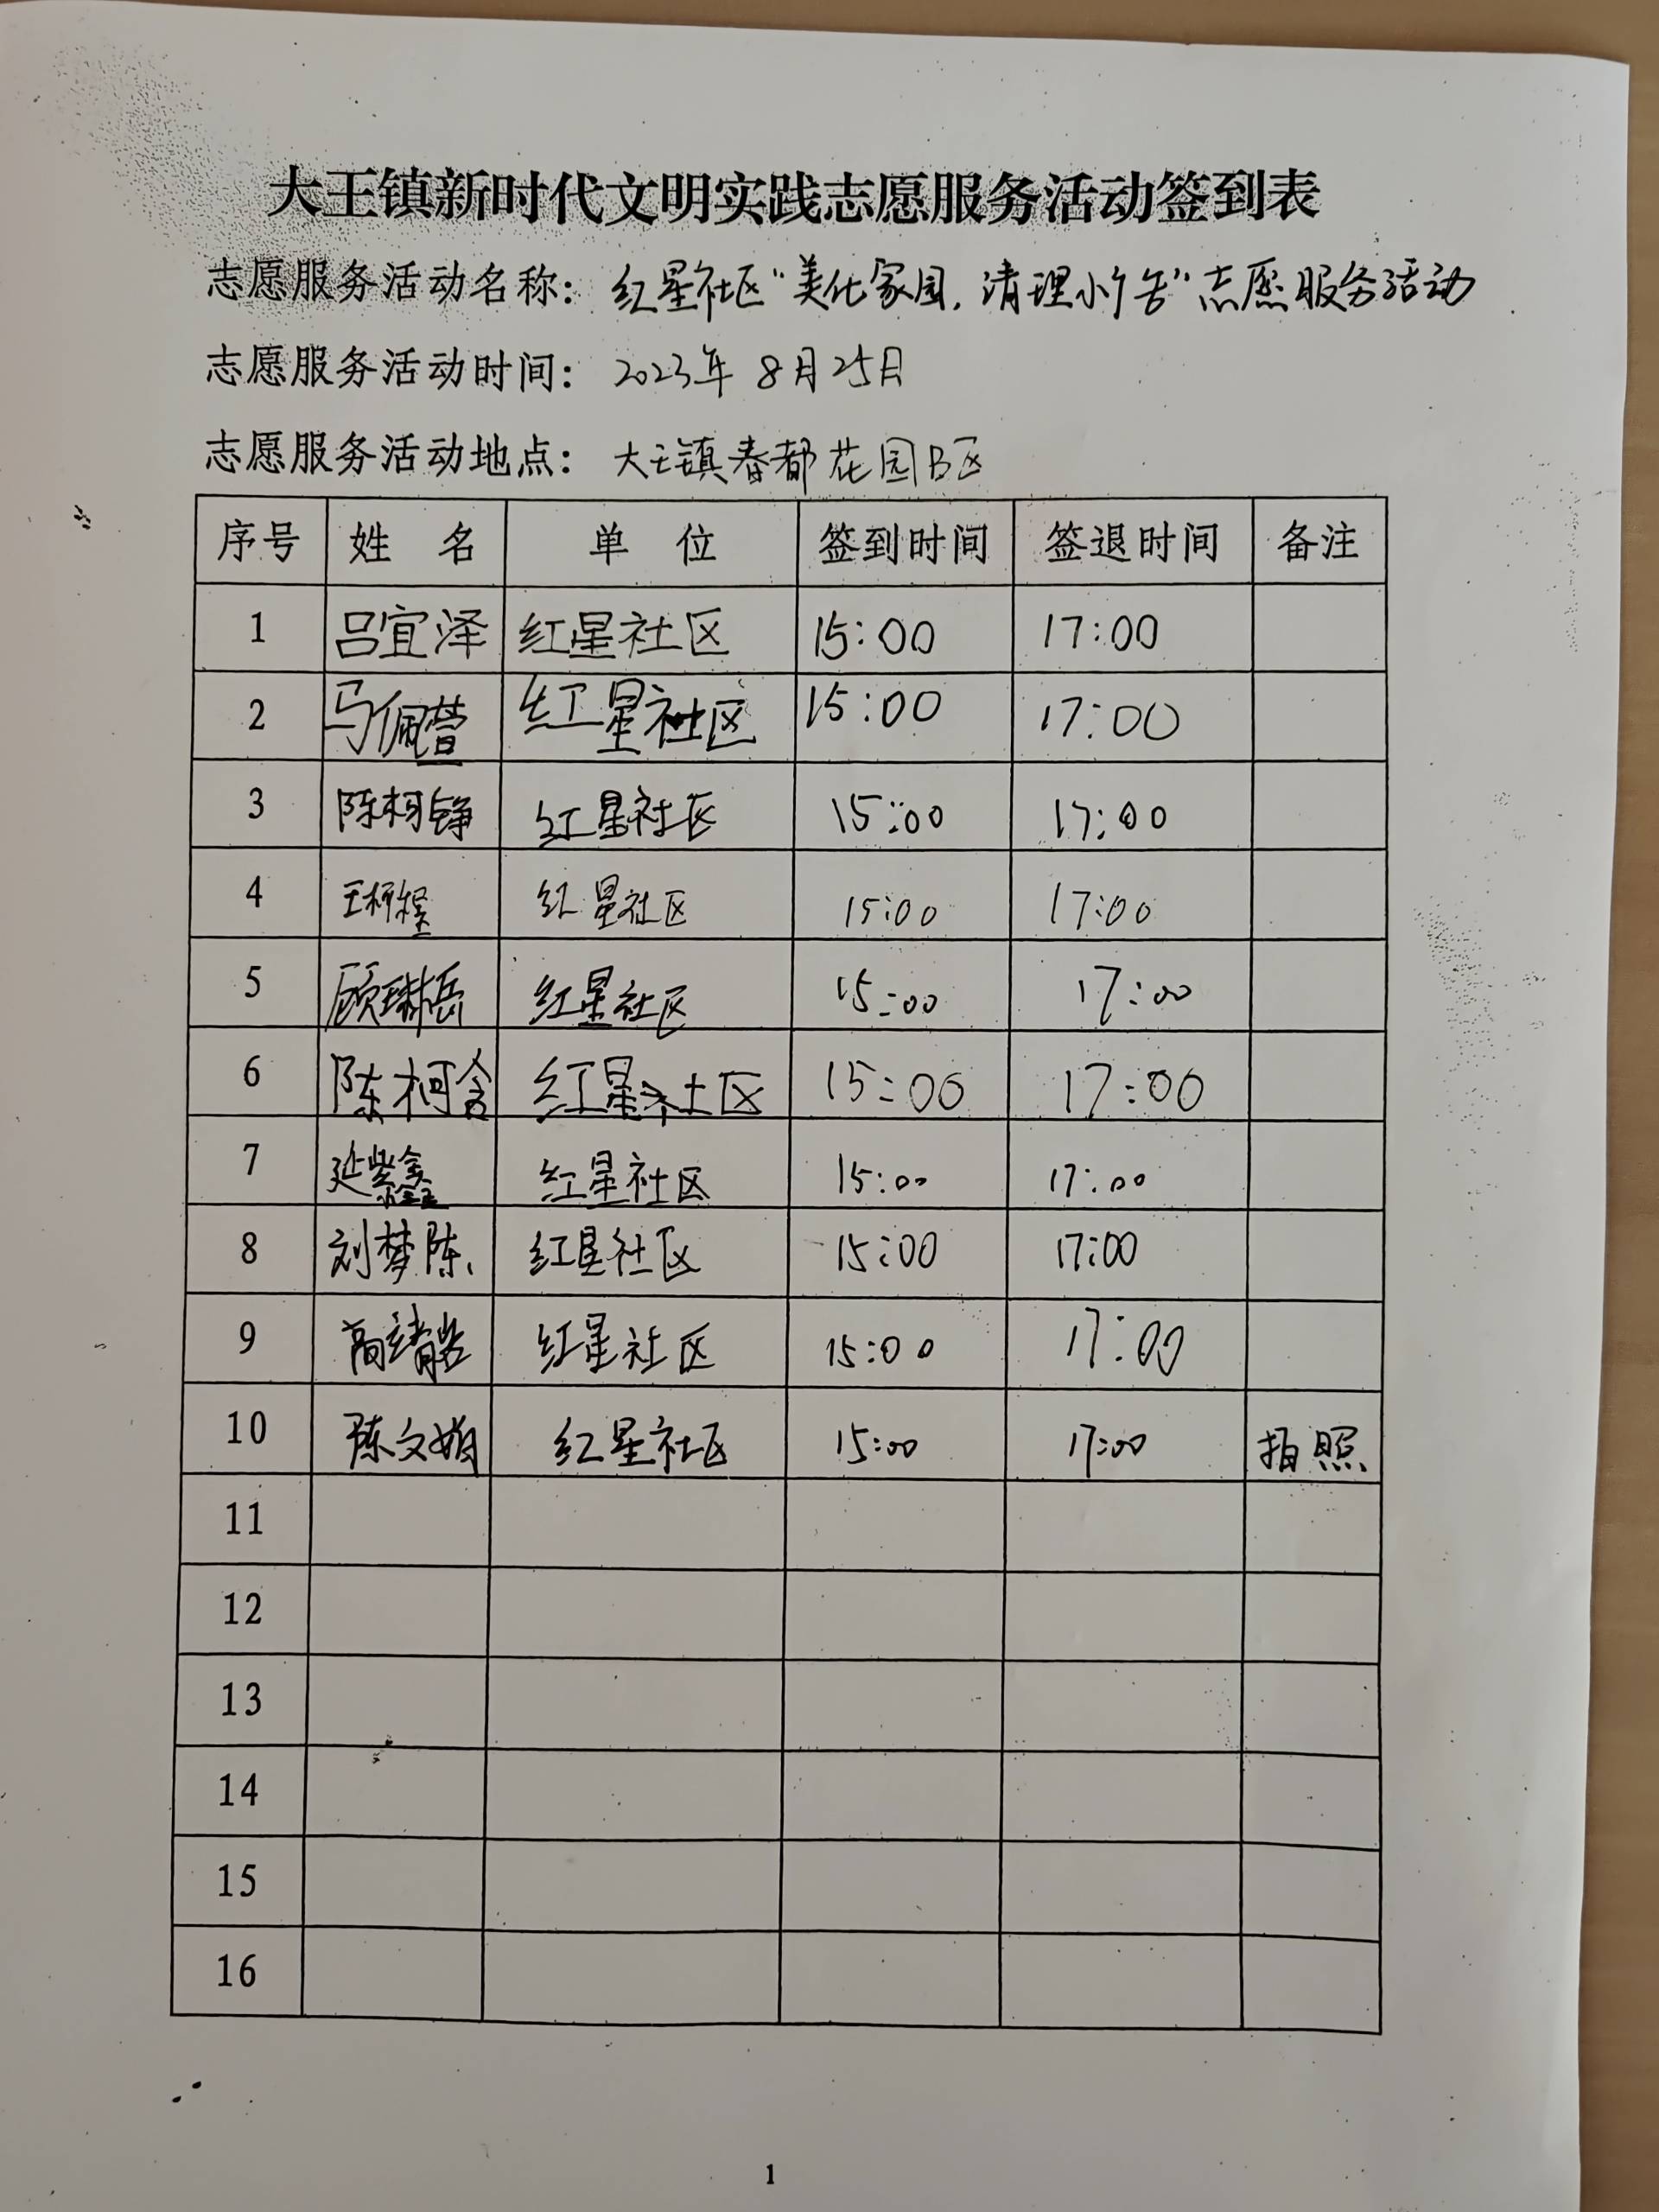 大王镇新时代文明实践志愿服务活动签到表
志愿服务活动名称：红星社区“美化家园，清理小广告”志愿服务活动
志愿服务活动时间：2023年8月25日
志愿服务活动地点：大王镇春都花园B区
序号 姓 名 单 位 签到时间 签退时间 备注
1 吕宜泽 红星社区 15:00 17:00
2 马佩萱 红星社区 15:00 17:00
3 陈柯铮 红星社区 15:00 17:00
4 红星社区 15:00 17:00
5 顾琳岳 红星社区 15:00 17:00
6 陈柯含 红星社区 15:00 17:00
7 延紫鑫 红星社区 15:00 17:00
8 刘梦陈 红星社区 15:00 17:00
9 红星社区 15:00 17:00
10 陈文娟 红星社区 15:00 17:00 拍照
11
12
13
14
15
16
1